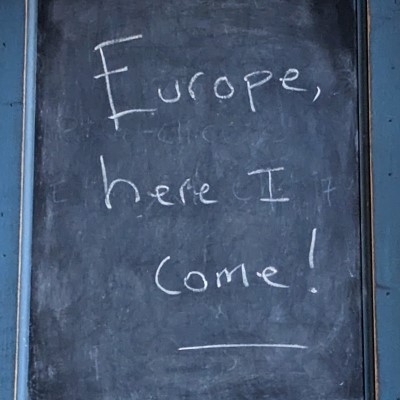 Europe,
here I
come!